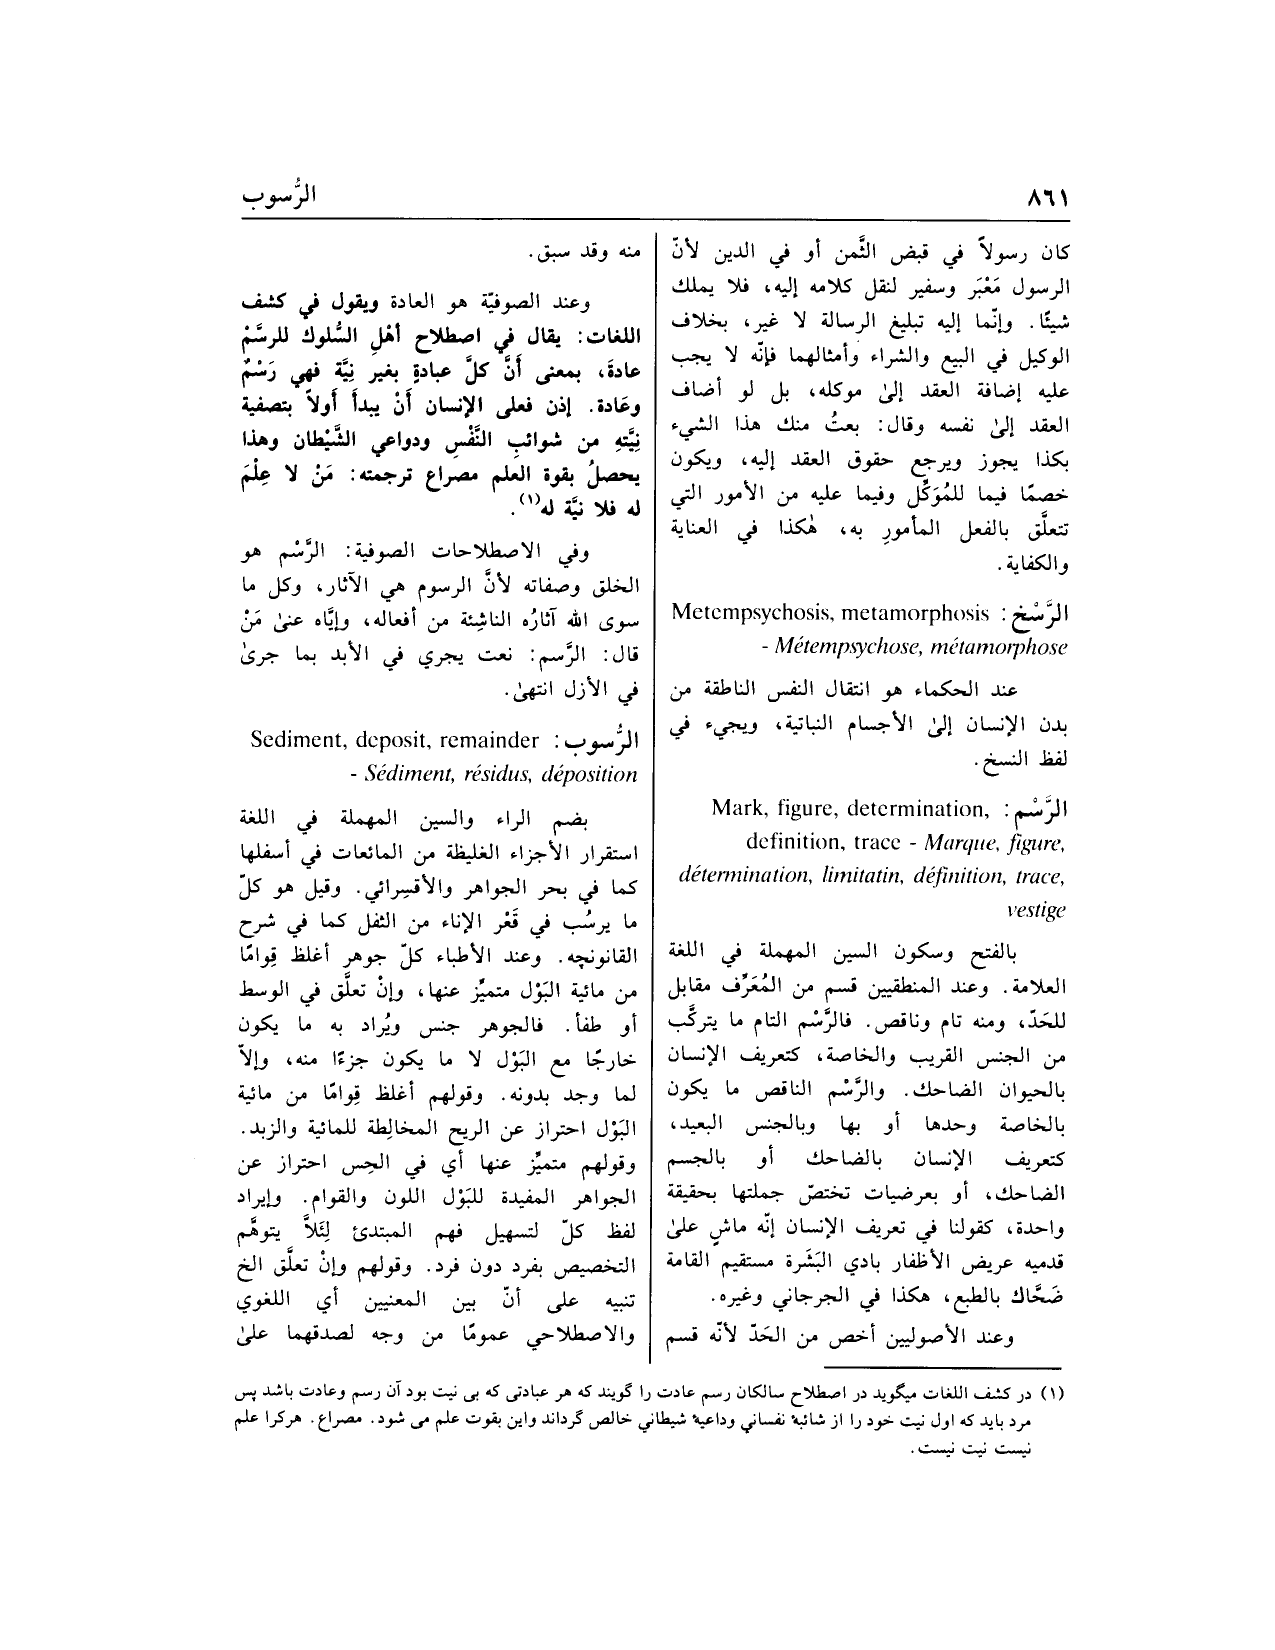 ٨٦١
الرُّسوب
كان رسولاً في قبض الثَّمن أو في الدين لأنّ
الرسول مَعْبَر وسفير لنقل كلامه إليه، فلا يملك
شيئًا. وإنّما إليه تبليغ الرسالة لا غير، بخلاف
الوكيل في البيع والشراء وأمثالهما فإنّه لا يجب
عليه إضافة العقد إلىٰ موكله، بل لو أضاف
العقد إلىٰ نفسه وقال: بعتُ منك هذا الشيء
بكذا يجوز ويرجع حقوق العقد إليه، ويكون
خصمًا فيما للمُوَكِّل وفيما عليه من الأمور التي
تتعلَّق بالفعل المأمورِ به، هٰكذا في العناية
والكفاية.
الرَّسْخ: Metempsychosis, metamorphosis
- Métempsychose, métamorphose
عند الحكماء هو انتقال النفس الناطقة من
بدن الإنسان إلىٰ الأجسام النباتية، ويجيء في
لفظ النسخ.
الرَّسْم: Mark, figure, determination,
definition, trace - Marque, figure,
détermination, limitatin, définition, trace,
vestige
بالفتح وسكون السين المهملة في اللغة
العلامة. وعند المنطقيين قسم من المُعَرِّف مقابل
للحَدّ، ومنه تام وناقص. فالرَّسْم التام ما يتركَّب
من الجنس القريب والخاصة، كتعريف الإنسان
بالحيوان الضاحك. والرَّسْم الناقص ما يكون
بالخاصة وحدها أو بها وبالجنس البعيد،
كتعريف الإنسان بالضاحك أو بالجسم
الضاحك، أو بعرضيات تختصّ جملتها بحقيقة
واحدة، كقولنا في تعريف الإنسان إنّه ماشٍ علىٰ
قدميه عريض الأظفار بادي البَشَرة مستقيم القامة
ضَحَّاك بالطبع، هكذا في الجرجاني وغيره.
وعند الأصوليين أخص من الحَدّ لأنّه قسم
منه وقد سبق.
وعند الصوفيّة هو العادة ويقول في كشف
اللغات: يقال في اصطلاح أهْلِ السُّلوك للرسَّمْ
عادة، بمعنى أَنَّ كلَّ عبادةٍ بغير نِيَّة فهي رَسْمٌ
وعَادة. إذن فعلى الإنسان أَنْ يبدأ أَولاً بتصفية
نِيَّتهِ من شوائبِ النَّفْسِ ودواعي الشَّيْطان وهذا
يحصلُ بقوة العلم مصراع ترجمته: مَنْ لا عِلْمَ
له فلا نيَّة له(١).
وفي الاصطلاحات الصوفية: الرَّسْم هو
الخلق وصفاته لأنَّ الرسوم هي الآثار، وكل ما
سوى الله آثارُه الناشِئة من أفعاله، وإيَّاه عنىٰ مَنْ
قال: الرَّسم: نعت يجري في الأبد بما جرىٰ
في الأزل انتهىٰ.
الرُّسوب: Sediment, deposit, remainder
- Sédiment, résidus, déposition
بضم الراء والسين المهملة في اللغة
استقرار الأجزاء الغليظة من المائعات في أسفلها
كما في بحر الجواهر والأقسِرائي. وقيل هو كلّ
ما يرسُب في قَعْر الإناء من الثفل كما في شرح
القانونچه. وعند الأطباء كلّ جوهر أغلظ قِوامًا
من مائية البَوْل متميِّز عنها، وإنْ تعلَّق في الوسط
أو طفأ. فالجوهر جنس ويُراد به ما يكون
خارجًا مع البَوْل لا ما يكون جزءًا منه، وإلاّ
لما وجد بدونه. وقولهم أغلظ قِوامًا من مائية
البَوْل احتراز عن الريح المخالِطة للمائية والزبد.
وقولهم متميِّز عنها أي في الحِس احتراز عن
الجواهر المفيدة للبَوْل اللون والقوام. وإيراد
لفظ كلّ لتسهيل فهم المبتدئ لِئَلاَّ يتوهَّم
التخصيص بفرد دون فرد. وقولهم وإنْ تعلَّق الخ
تنبيه على أنّ بين المعنيين أي اللغوي
والاصطلاحي عمومًا من وجه لصدقهما علىٰ
(١) در كشف اللغات ميگويد در اصطلاح سالكان رسم عادت را گويند كه هر عبادتى كه بى نيت بود آن رسم وعادت باشد پس
مرد بايد كه اول نيت خود را از شائبهٔ نفساني وداعيهٔ شيطاني خالص گرداند واين بقوت علم مى شود. مصراع. هركرا علم
نيست نيت نيست.